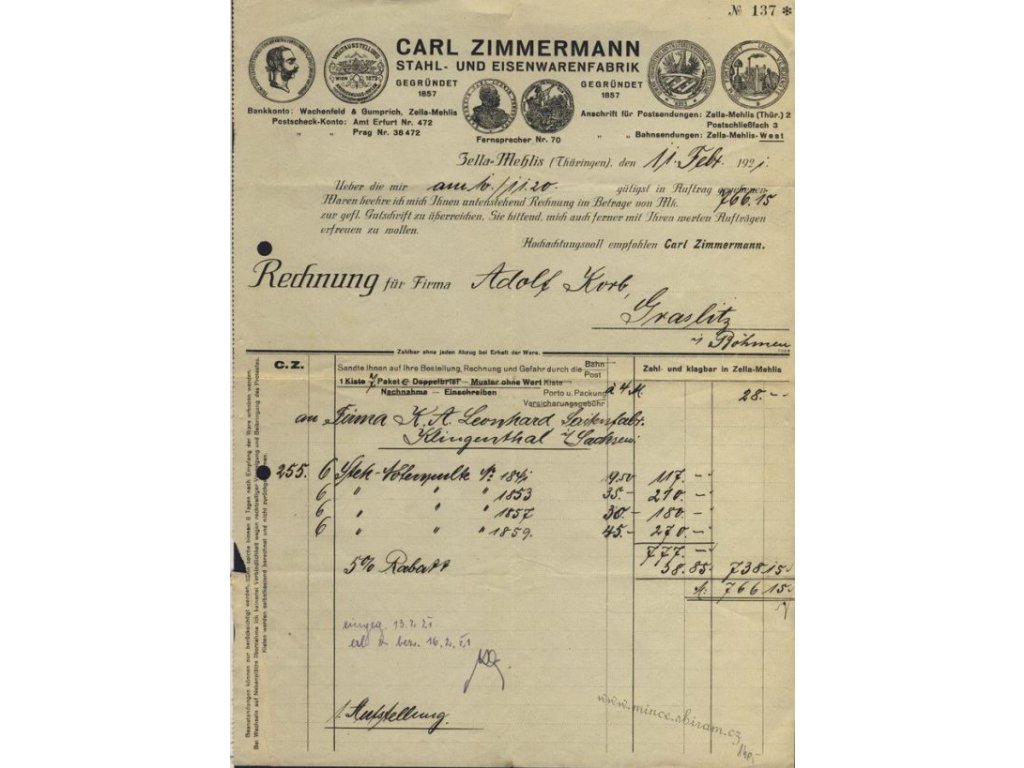 № 137 *
CARL ZIMMERMANN
STAHL- UND EISENWARENFABRIK
GEGRÜNDET 1857
GEGRÜNDET 1857
WELTAUSSTELLUNG
WIEN 1873
Bankkonto: Wachenfeld & Gumprich, Zella-Mehlis
Postscheck-Konto: Amt Erfurt Nr. 472
„ „ Prag Nr. 38472
Fernsprecher Nr. 70
Anschrift für Postsendungen: Zella-Mehlis (Thür.) 2
Postschließfach 3
„ „ Bahnsendungen: Zella-Mehlis-West
Zella-Mehlis (Thüringen), den 11. Febr. 1921.
Ueber die mir am 10./11.20. gütigst in Auftrag gegebenen
Waren beehre ich mich Ihnen untenstehend Rechnung im Betrage von Mk. 766.15
zur gefl. Gutschrift zu überreichen, Sie bittend, mich auch ferner mit Ihren werten Aufträgen
erfreuen zu wollen.
Hochachtungsvoll empfohlen Carl Zimmermann.
Rechnung für Firma Adolf Korb,
Graslitz
i/ Böhmen
Zahlbar ohne jeden Abzug bei Erhalt der Ware.
C. Z.
Sandte Ihnen auf Ihre Bestellung, Rechnung und Gefahr durch die Bahn Post
1 Kiste Paket Doppelbrief – Muster ohne Wert Kiste
Nachnahme – Einschreiben
Porto u. Packung
Versicherungsgebühr
à 4 M.
Zahl- und klagbar in Zella-Mehlis
28.--
an Firma K. A. Leonhard Saitenfabr.
Klingenthal i/ Sachsen
255. 6 Stck. Notenpulte № 1841 19.50 117.-
6 „ „ „ 1853 35.- 210.-
6 „ „ „ 1857 30.- 180.-
6 „ „ „ 1859. 45.- 270.-
777.-
5% Rabatt 38.85 738.15
M. 766.15
eingeg. 13.2.21
erl. 16.2.21
1 Aufstellung.
www.mince.sbiram.cz